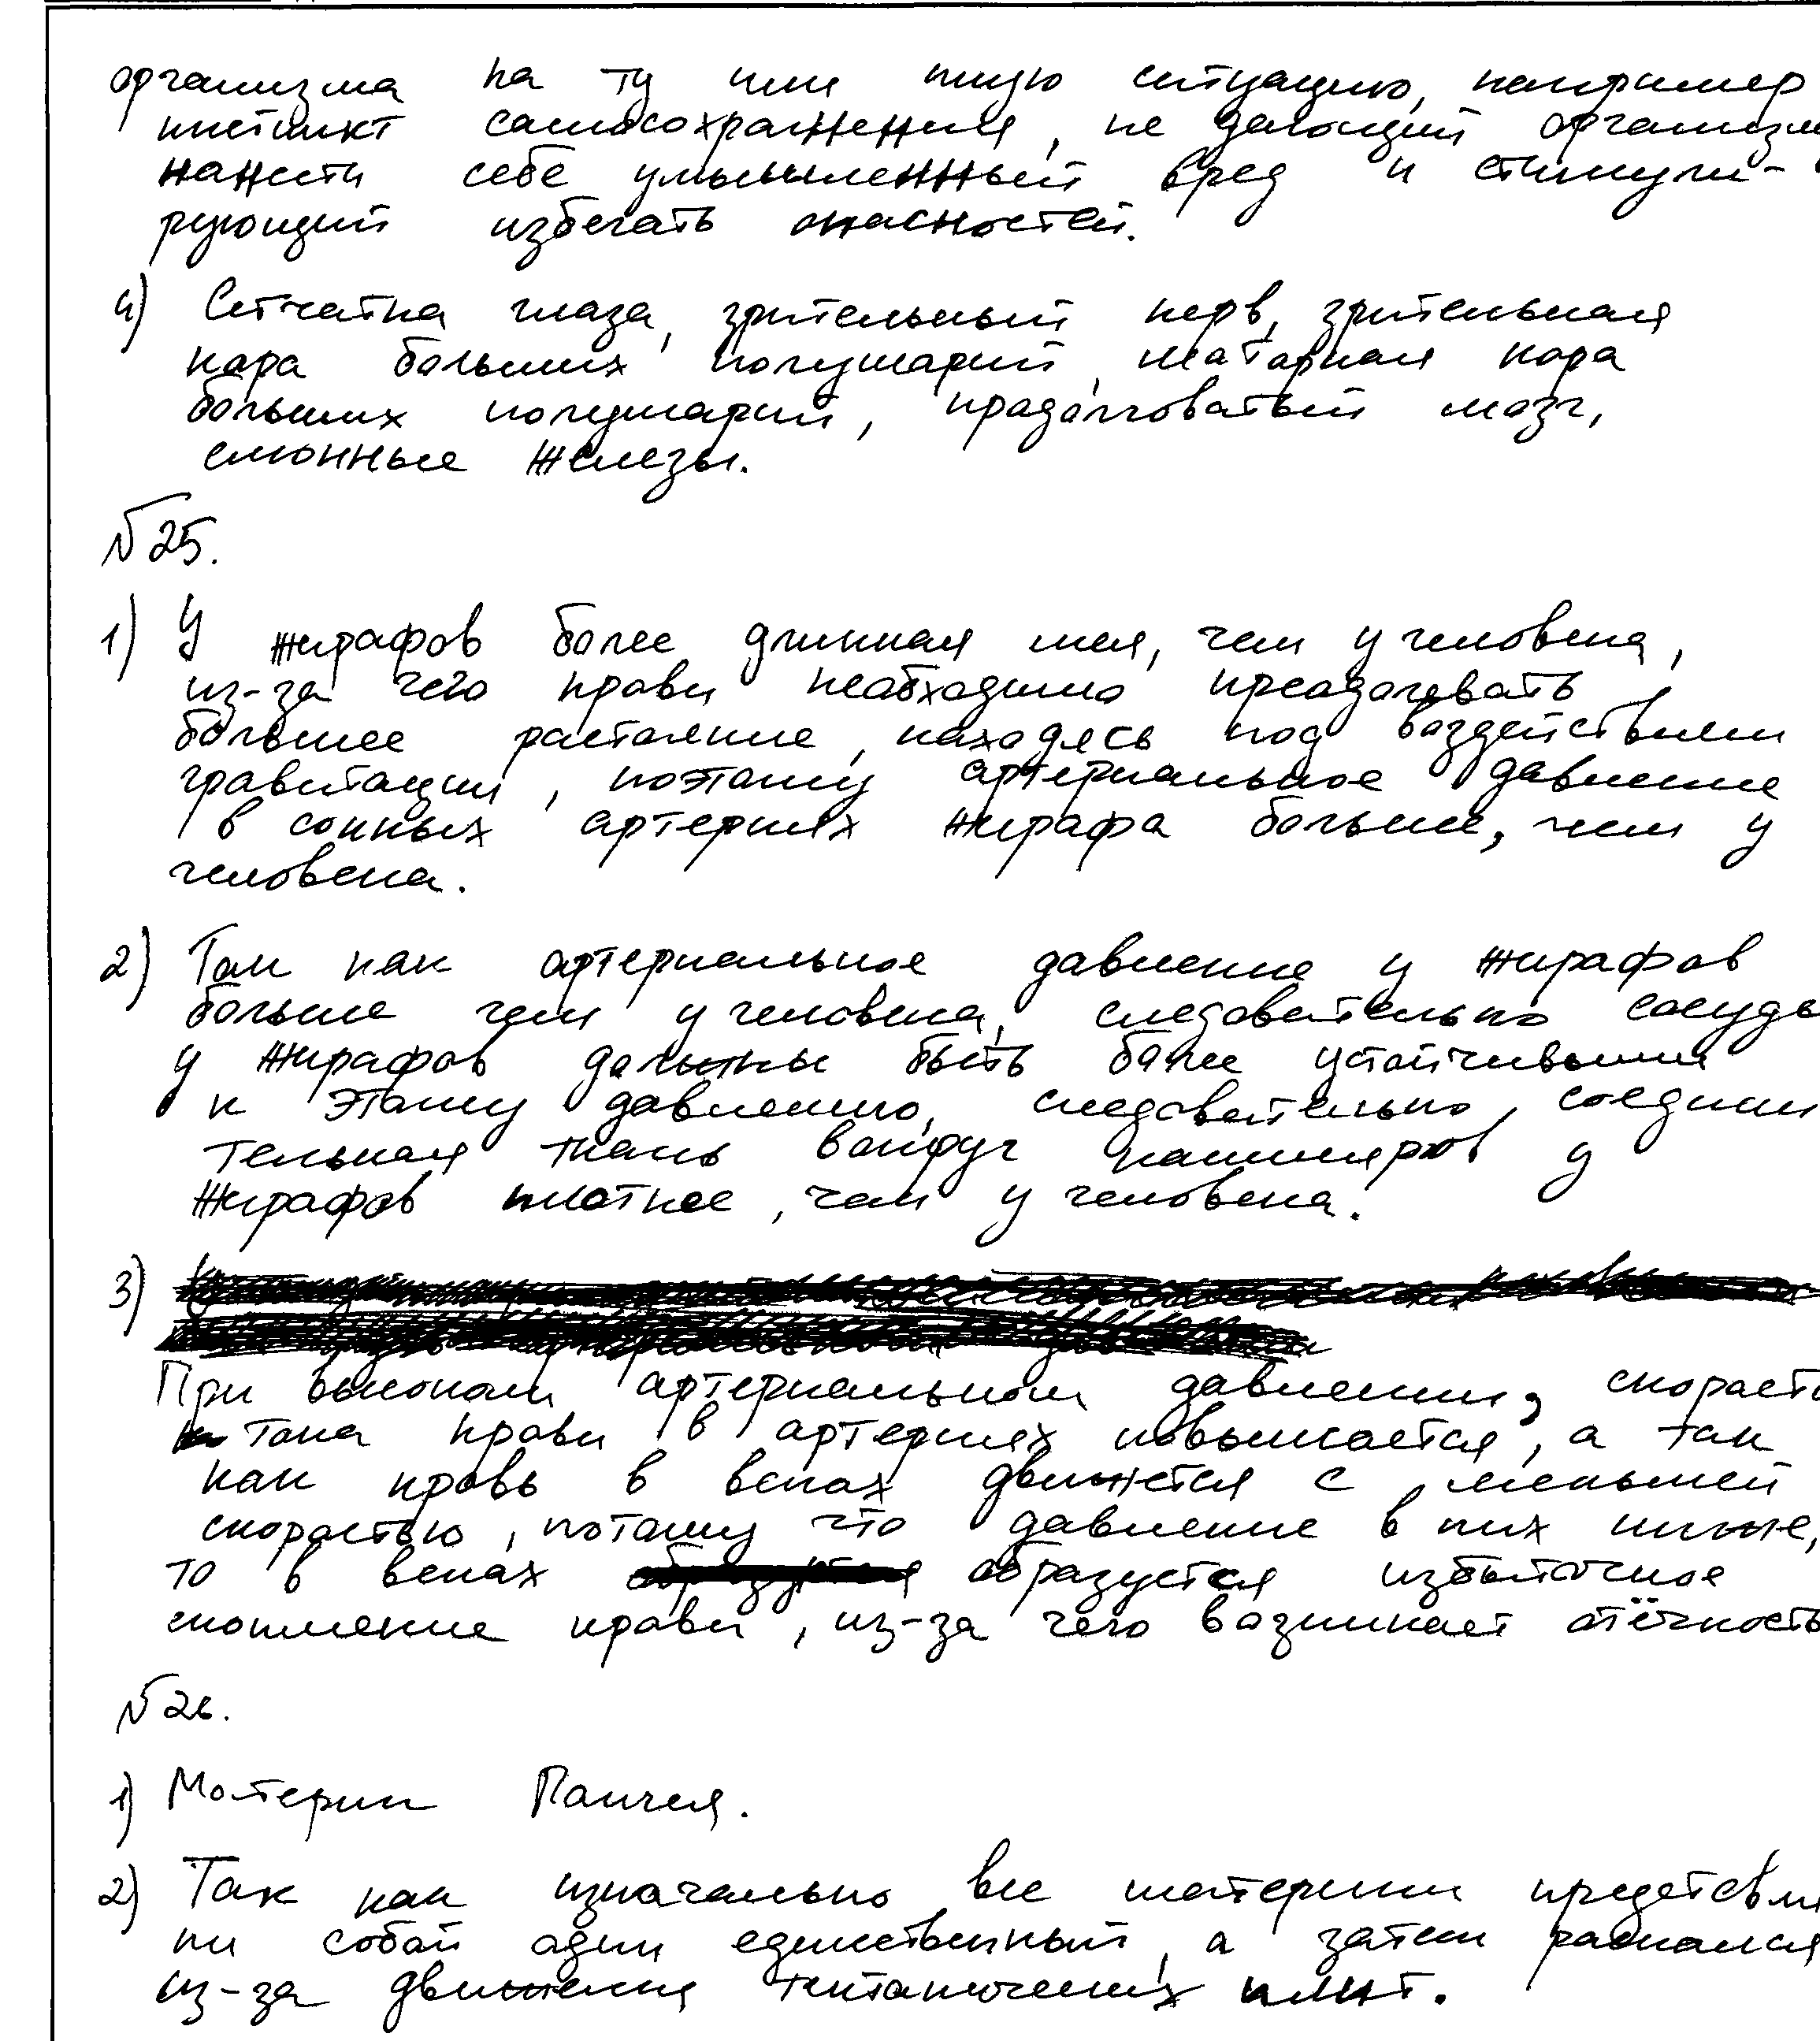 организма на ту или иную ситуацию, например
инстинкт самосохранения, не дающий организм
нанести себе умышленный вред и стимули-
рующий избегать опасностей.
4) Сетчатка глаза, зрительный нерв, зрительная
кора больших полушарий, маторная кора
больших полушарий, прадолговатый мозг,
слюнные железы.
№25.
1) У жирафов более длинная шея, чем у человека,
из-за чего крови необходимо преодолевать
большее растояние, находясь под воздействием
гравитации, поэтому артериальное давление
в сонных артериях жирафа больше, чем у
человека.
2) Так как артериальное давление у жирафов
больше чем у человека, следовательно сосуды
у жирафов должны быть более устойчивыми
к этому давлению, следовательно, соедини
тельная ткань вокруг капиляров у
жирафов плотнее, чем у человека.
3)
При высоком артериальном давлении, скорость
тока крови в артериях повышается, а так
как кровь в венах движется с меньшей
скоростью, потому что давление в них ниже,
то в венах образуется избыточное
скопление крови, из-за чего возникает отёчность
№26.
1) Материк Пангея.
2) Так как изначально все материки предствля
ли собой один единственный, а затем распался
из-за движения тектонических плит.